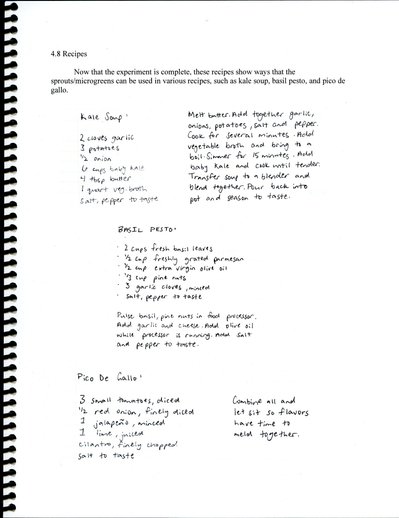 4.8 Recipes
Now that the experiment is complete, these recipes show ways that the
sprouts/microgreens can be used in various recipes, such as kale soup, basil pesto, and pico de
gallo.
Kale Soup:
2 cloves garlic
3 potatoes
1/2 onion
6 cups baby kale
4 tbsp butter
1 quart veg. broth
Salt, pepper to taste
Melt butter. Add together garlic,
onions, potatoes, salt and pepper.
Cook for several minutes. Add
vegetable broth and bring to a
boil. Simmer for 15 minutes. Add
baby kale and cook until tender.
Transfer soup to a blender and
blend together. Pour back into
pot and season to taste.
BASIL PESTO:
· 2 cups fresh basil leaves
· 1/2 cup freshly grated parmesan
· 1/2 cup extra virgin olive oil
· 1/3 cup pine nuts
· 3 garlic cloves, minced
· salt, pepper to taste
Pulse basil, pine nuts in food processor.
Add garlic and cheese. Add olive oil
while processor is running. Add salt
and pepper to taste.
Pico De Gallo:
3 small tomatoes, diced
1/2 red onion, finely diced
1 jalapeño, minced
1 lime, juiced
cilantro, finely chopped
salt to taste
Combine all and
let sit so flavors
have time to
meld together.